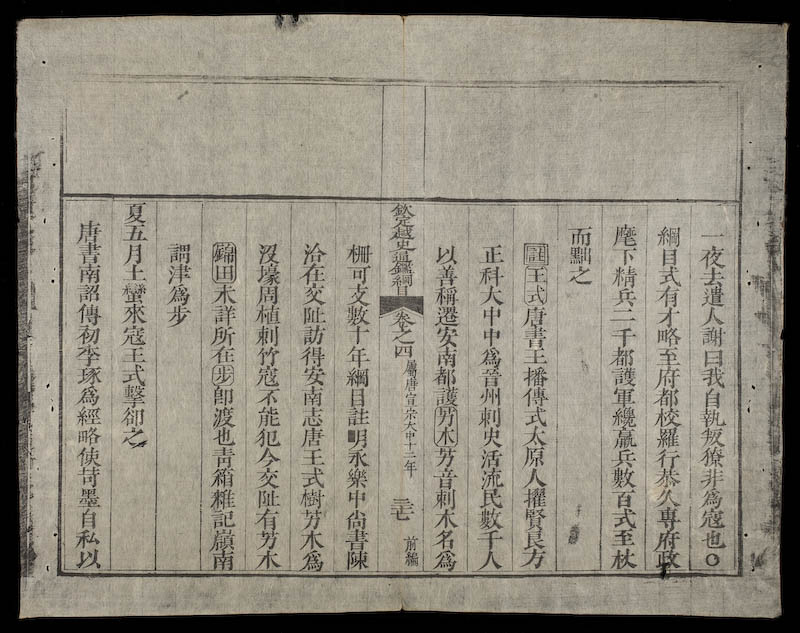 一夜去遣人謝曰我自執叛獠非為寇也〇
綱目式有才略至府都校羅行恭久專府政
麾下精兵二千都護軍纔羸兵數百式至杖
而黜之
註王式唐書王播傳式太原人擢賢良方
正科大中中為晉州刺史活流民數千人
以善稱遷安南都護艻木艻音刺木名為
欽定越史通鑑綱目 卷之四 屬唐宣宗大中十二年 三七 前編
柵可支數十年綱目註明永樂中尚書陳
洽在交阯訪得安南志唐王式樹艻木為
沒壕周植刺竹寇不能犯今交阯有艻木
錦田未詳所在步卽渡也青箱雜記嶺南
謂津為步
夏五月土蠻來寇王式擊卻之
唐書南詔傳初李琢為經略使苛墨自私以